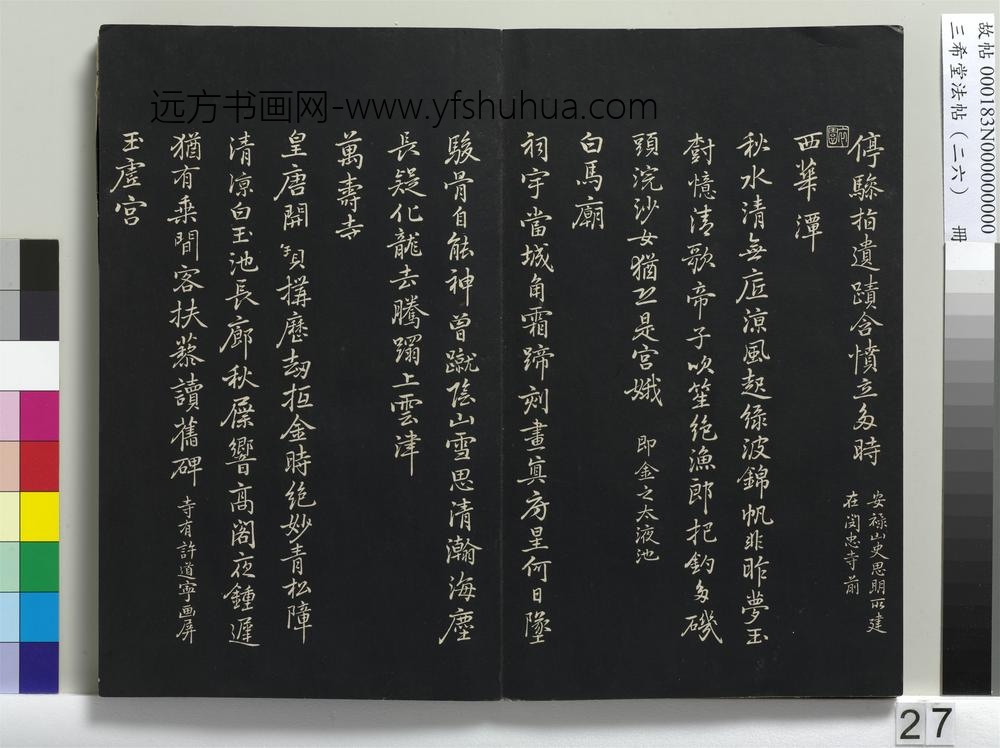 停驂拍遺蹟含憤立多時
安祿山史思明所建
在閔忠寺前
西華潭
秋水清無底涼風起綠波錦帆非昨夢玉
樹憶清歌帝子吹笙絕漁郎把釣多磯
頭浣沙女猶恐是宮娥
即金之太液池
白馬廟
祠宇當城角霜蹄刻畫真房星何日墜
駿骨自能神曾蹴陰山雪思清瀚海塵
長疑化龍去騰躍上雲津
萬壽寺
皇唐開寶搆歷劫抵金時絕妙青松障
清涼白玉池長廊秋屧響高閣夜鍾遲
猶有乘閒客扶藜讀舊碑
寺有許道寧画屏
玉虛宮
远方书画网-www.yfshuhua.com
故帖 000183N000000000
三希堂法帖（二六） 冊
27